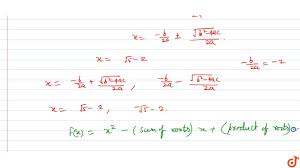 x = -b/2a ± √(b²-4ac)/2a
x = √5 - 2        -b/2a = -2
x = -b/2a + √(b²-4ac)/2a ,   -b/2a - √(b²-4ac)/2a
x = √5 - 2 ,   -√5 - 2
f(x) = x² - (sum of roots) x + (product of roots)